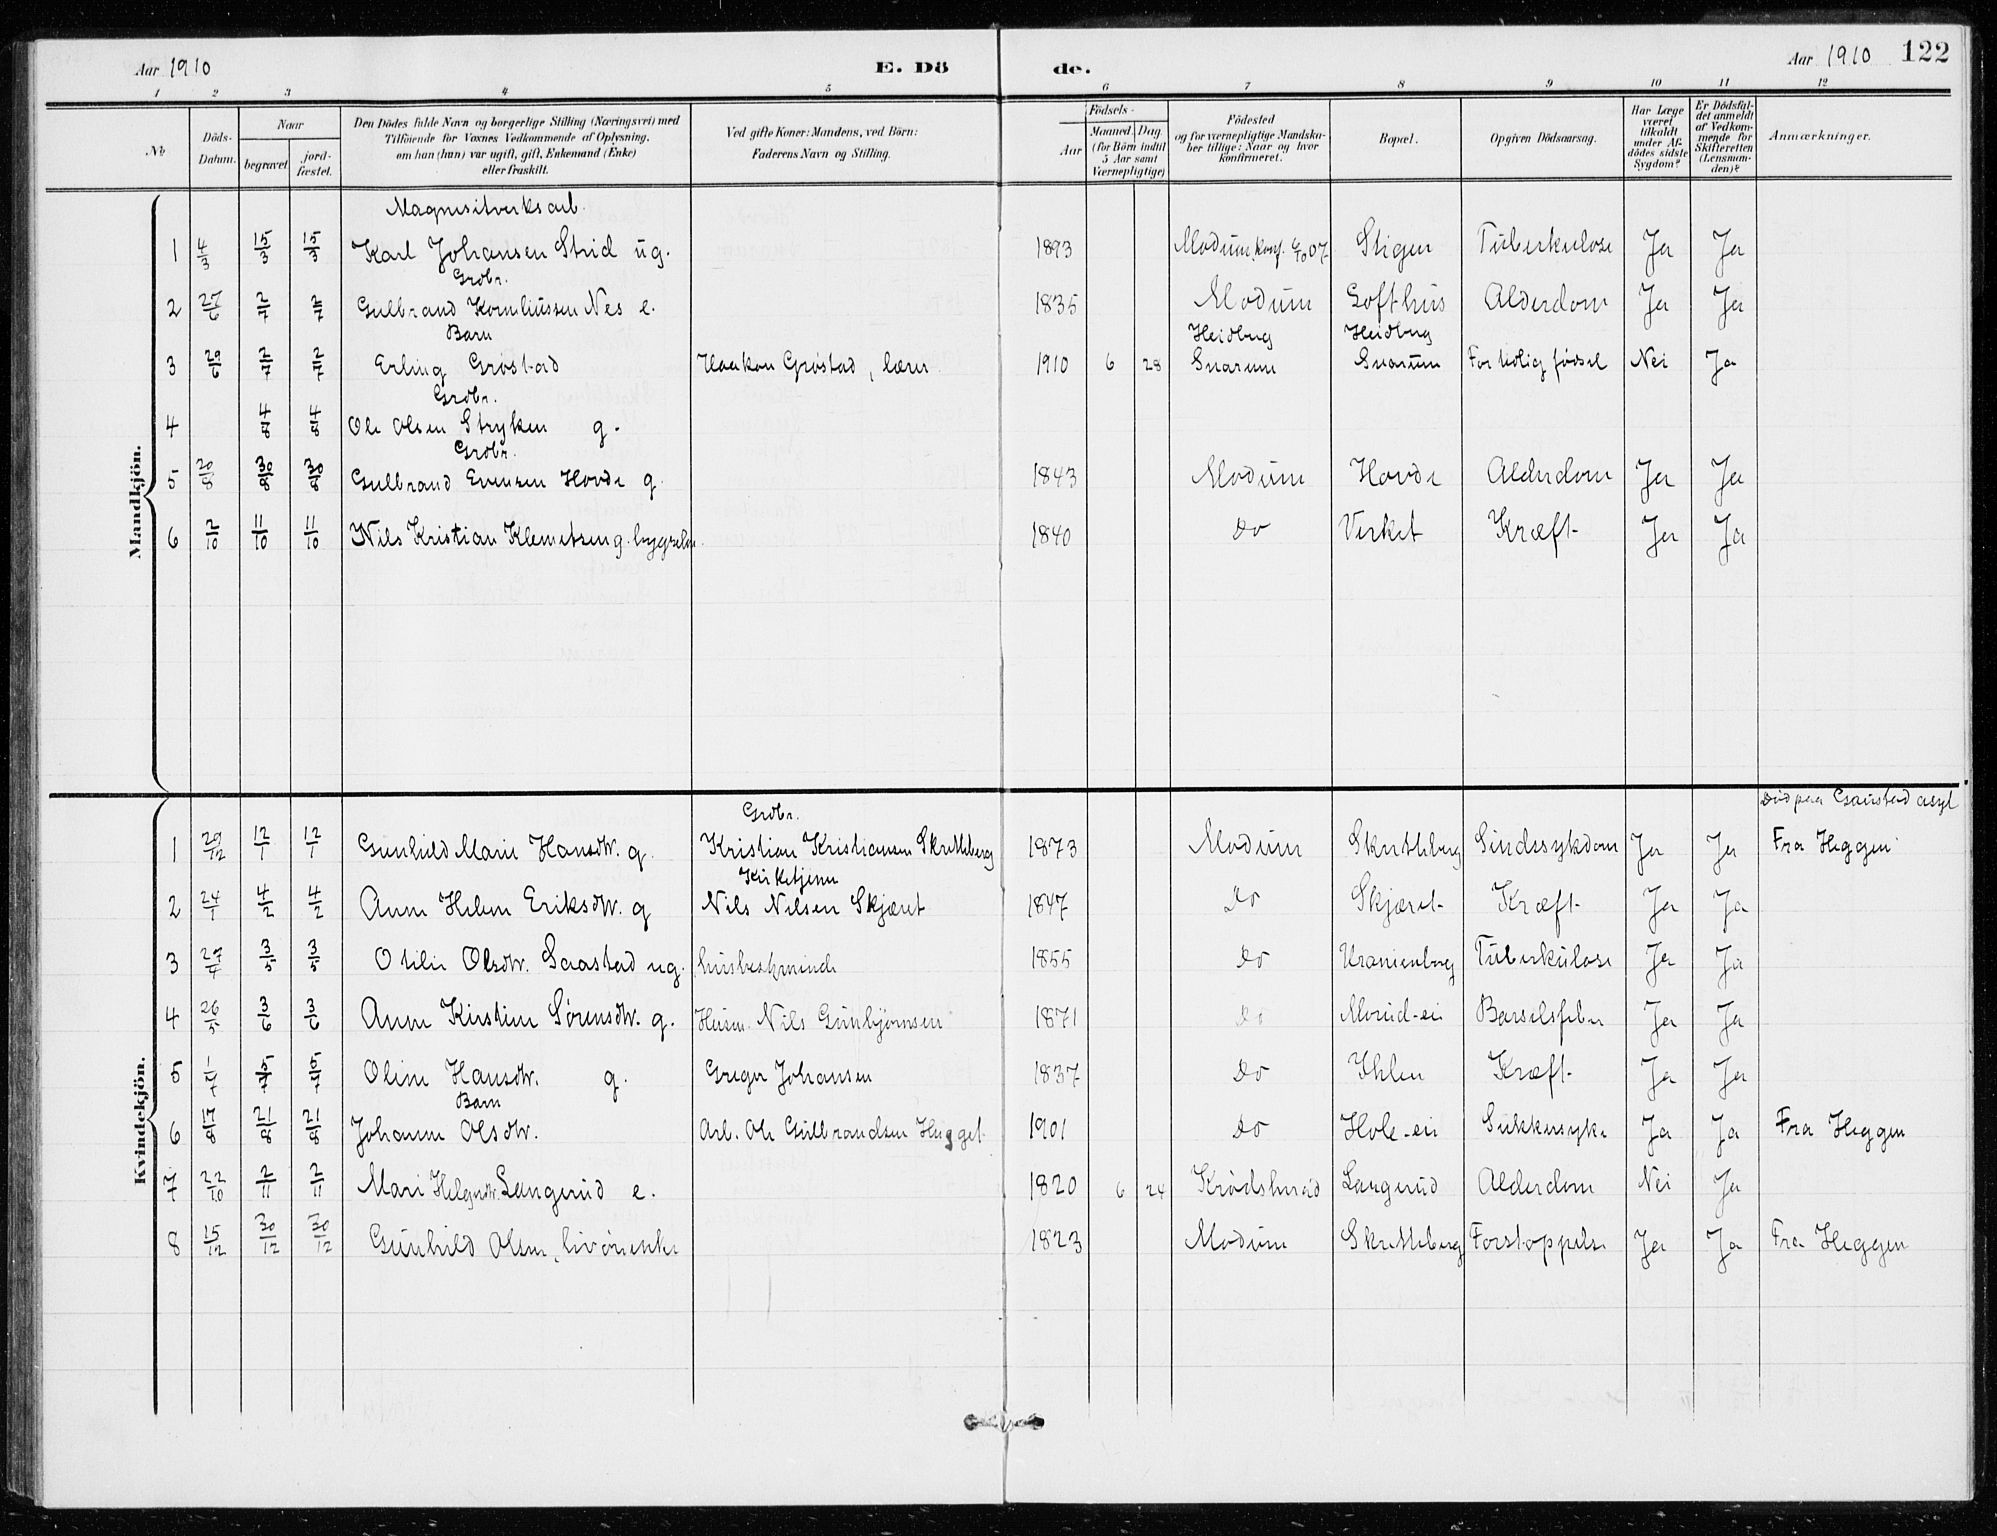 Aar 1910 E. Dö de. Aar 1910 122
1 2 3 4 5 6 7 8 9 10 11 12
No
Döds-Datum.
Naar
begravet
jord-fæstet.
Den Dödes fulde Navn og borgerlige Stilling (Næringsvei) med
Tilföiende for Voxnes Vedkommende af Oplysning,
om han (hun) var ugift, gift, Enkemand (Enke)
eller fraskilt.
Ved gifte Koner: Mandens, ved Börn:
Faderens Navn og Stilling.
Födsels-
Aar
Maaned. Dag.
(for Börn indtil
5 Aar samt
Værnepligtige)
Födested
og for værnepligtige Mandska-
ber tillige: Naar og hvor
konfirmeret.
Bopæl.
Opgiven Dödsaarsag.
Har Læge
været
tilkaldt
under Af-
dödes sidste
Sygdom?
Er Dödsfal-
det anmeldt
af Vedkom-
mende for
Skifteretten
(Lensman-
den)?
Anmærkninger.
Mandkjön.
Magnesitverksarb.
1 4/3 15/3 15/3 Karl Johansen Strid ug. 1893 Modum, konf. 07 Stigen Tuberkulose Ja Ja
Grdbr.
2 27/6 2/7 2/7 Gulbrand Korneliussen Nes e. 1835 Modum Gofthus Alderdom Ja Ja
Barn Heidberg Heidberg
3 29/6 2/7 2/7 Erling Grøstad Haakon Grøstad, lærer 1910 6 28 Snarum Snarum For tidlig fødsel Nei Ja
Grdbr.
4 4/8 4/8 Ole Olsen Stryken g.
Grdbr.
5 20/8 30/8 30/8 Gulbrand Evensen Hovde g. 1843 Modum Hovde Alderdom Ja Ja
6 2/10 11/10 11/10 Nils Kristian Klemetsen g. 1840 Do Verket Kræft Ja Ja
Kvindekjön.
Grdbr. Död paa Gaustad asyl
1 29/12 12/1 12/1 Gunhild Marie Hansdtr. g. Kristian Kristiansen Skretteberg 1873 Modum Skretteberg Sindssykdom Ja Ja Fra Heggen
Kirketjener
2 24/1 4/2 4/2 Anne Helene Eriksdtr. g Nils Nilsen Skjæret 1847 Do Skjæret Kræft Ja Ja
3 27/4 3/5 3/5 Otilie Olsdtr. Saastad ug. husbestyrerinde 1855 Do Uranienborg Tuberkulose Ja Ja
4 26/5 3/6 3/6 Anne Kirstine Sørensdtr. g. Husm. Nils Gunbjørnsen 1871 Do Morud-eie Barselsfeber Ja Ja
5 1/7 5/7 5/7 Oline Hansdtr. g. Greger Johansen 1837 Do Ihlen Kræft Ja Ja
Barn
6 17/8 21/8 21/8 Johanne Olsdtr. Arb. Ole Gulbrandsen Hugget 1901 Do Hole-eie Sukkersyke Ja Ja Fra Heggen
7 22/10 2/11 2/11 Mari Helgesdtr. Langerud e. 1820 6 24 Krødsherad Langerud Alderdom Nei Ja
8 15/12 20/12 20/12 Gunhild Olsen, livørenke 1823 Modum Skretteberg Forstoppelse Ja Ja Fra Heggen